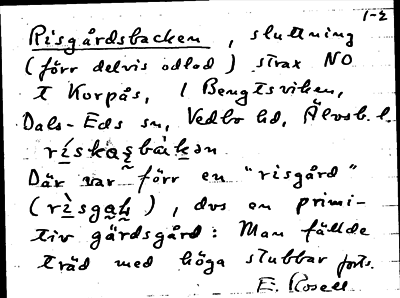 1-2
Risgårdsbacken, sluttning
(förr delvis odlad) strax NO
t Korpås, i Bengtsviken,
Dals-Eds sn, Vedbo hd, Älvsb. l.
Där var förr en "risgård"
( ), dvs en primi-
tiv gärdsgård: Man fällde
träd med höga stubbar forts.
E. Rosell